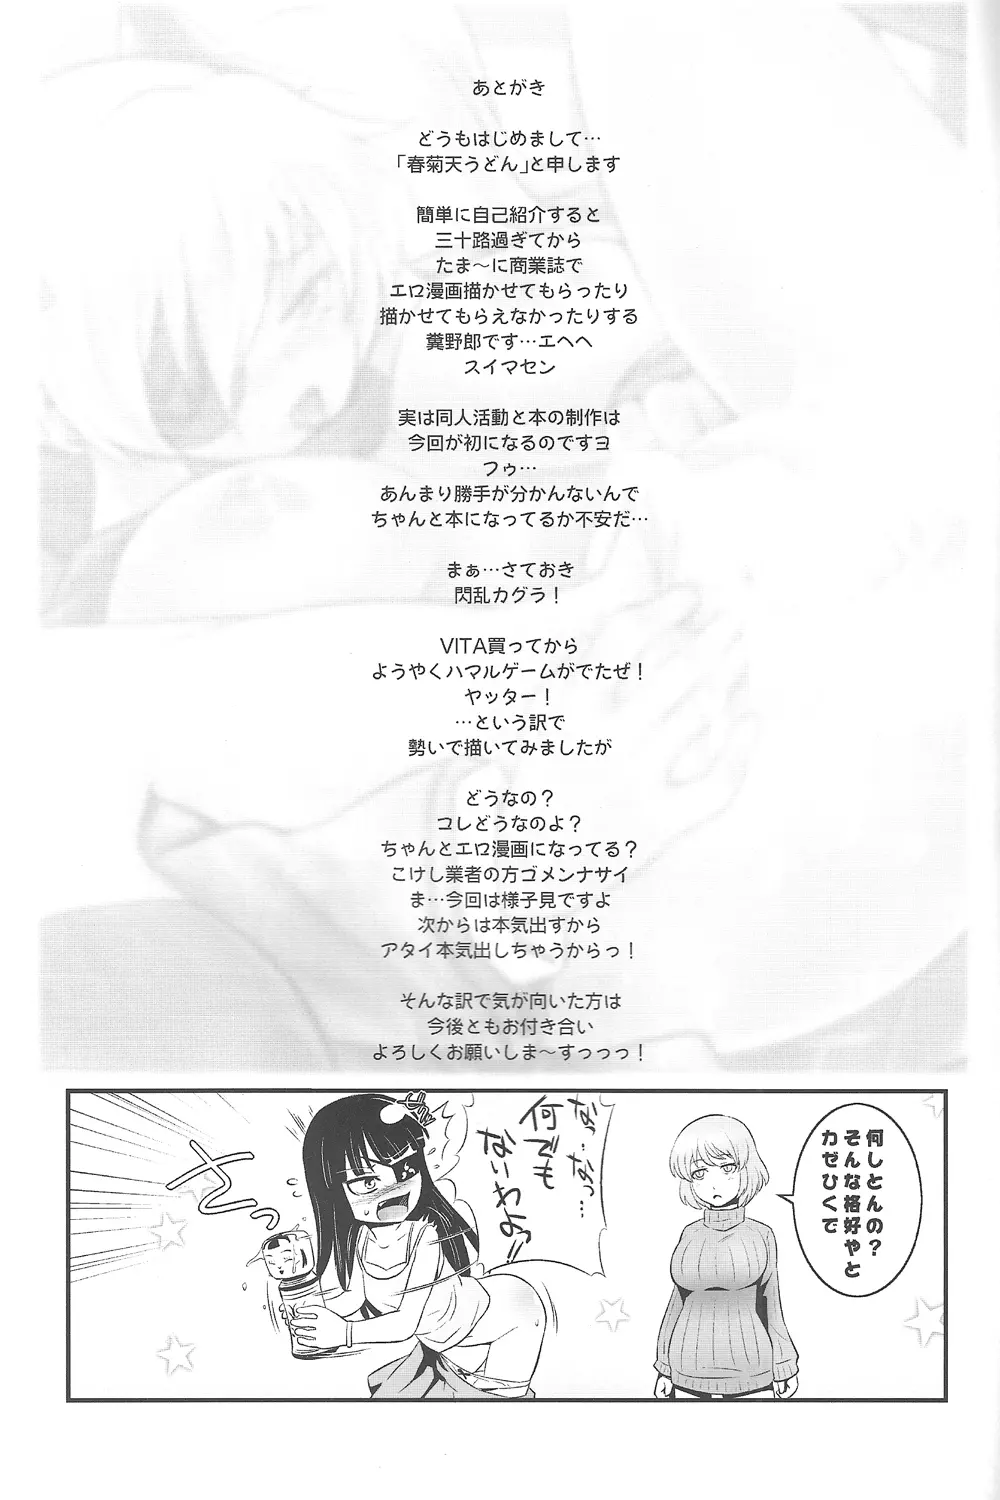 あとがき
どうもはじめまして…
「春菊天うどん」と申します
簡単に自己紹介すると
三十路過ぎてから
たま～に商業誌で
エロ漫画描かせてもらったり
描かせてもらえなかったりする
糞野郎です…エヘヘ
スイマセン
実は同人活動と本の制作は
今回が初になるのですヨ
フゥ…
あんまり勝手が分かんないんで
ちゃんと本になってるか不安だ…
まぁ…さておき
閃乱カグラ！
VITA買ってから
ようやくハマルゲームがでたぜ！
ヤッター！
…という訳で
勢いで描いてみましたが
どうなの？
コレどうなのよ？
ちゃんとエロ漫画になってる？
こけし業者の方ゴメンナサイ
ま…今回は様子見ですよ
次からは本気出すから
アタイ本気出しちゃうからっ！
そんな訳で気が向いた方は
今後ともお付き合い
よろしくお願いしま～すっっっ！
何しとんの？
そんな格好やと
カゼひくで
なっ…なっ…
何でも
ないわよっ!!